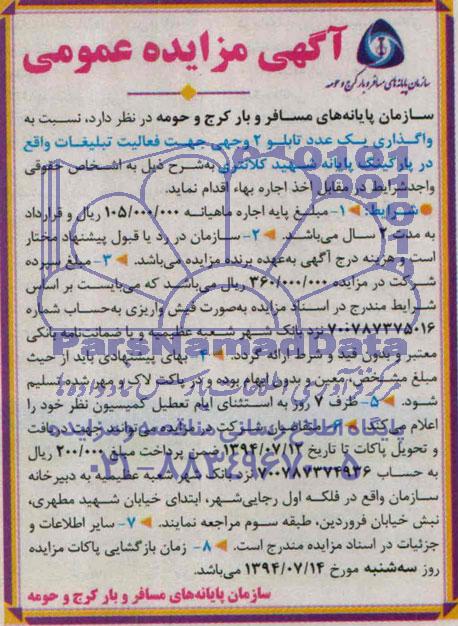 آگهی مزایده عمومی
سازمان پایانه‌های مسافر و بار کرج و حومه
سازمان پایانه‌های مسافر و بار کرج و حومه در نظر دارد، نسبت به
واگذاری یک عدد تابلو ۲ وجهی جهت فعالیت تبلیغات واقع
در پارکینگ پایانه شهید کلانتری به‌شرح ذیل به اشخاص حقوقی
واجدشرایط در مقابل اخذ اجاره بهاء اقدام نماید.
شرایط: ۱- مبلغ پایه اجاره ماهیانه ۱۰۵/۰۰۰/۰۰۰ ریال و قرارداد
به مدت ۲ سال می‌باشد. ۲- سازمان در رد یا قبول پیشنهاد مختار
است و هزینه درج آگهی به‌عهده برنده مزایده می‌باشد. ۳- مبلغ سپرده
شرکت در مزایده ۳۶۰/۰۰۰/۰۰۰ ریال می‌باشد که می‌بایست بر اساس
شرایط مندرج در اسناد مزایده به‌صورت فیش واریزی به‌حساب شماره
۷۰۰۷۸۷۳۷۵۰۱۶ نزد بانک شهر شعبه عظیمیه و یا ضمانت‌نامه بانکی
معتبر و بدون قید و شرط ارائه گردد. ۴- بهای پیشنهادی باید از حیث
مبلغ مشخص، معین و بدون ابهام بوده و در پاکت لاک و مهر شده تسلیم
شود. ۵- ظرف ۷ روز به استثنای ایام تعطیل کمیسیون نظر خود را
اعلام می‌کند. ۶- متقاضیان شرکت در مزایده می‌توانند جهت دریافت
و تحویل پاکات تا تاریخ ۱۳۹۴/۰۷/۱۲ ضمن پرداخت مبلغ ۲۰۰/۰۰۰ ریال
به حساب ۷۰۰۷۸۷۳۷۴۹۳۶ نزد بانک شهر شعبه عظیمیه به دبیرخانه
سازمان واقع در فلکه اول رجایی‌شهر، ابتدای خیابان شهید مطهری،
نبش خیابان فروردین، طبقه سوم مراجعه نمایند. ۷- سایر اطلاعات و
جزئیات در اسناد مزایده مندرج است. ۸- زمان بازگشایی پاکات مزایده
روز سه‌شنبه مورخ ۱۳۹۴/۰۷/۱۴ می‌باشد.
سازمان پایانه‌های مسافر و بار کرج و حومه
ParsNamadData
پایگاه اطلاع رسانی مناقصه و مزایده
۰۲۱-۸۸۳۴۹۶۷۰-۵